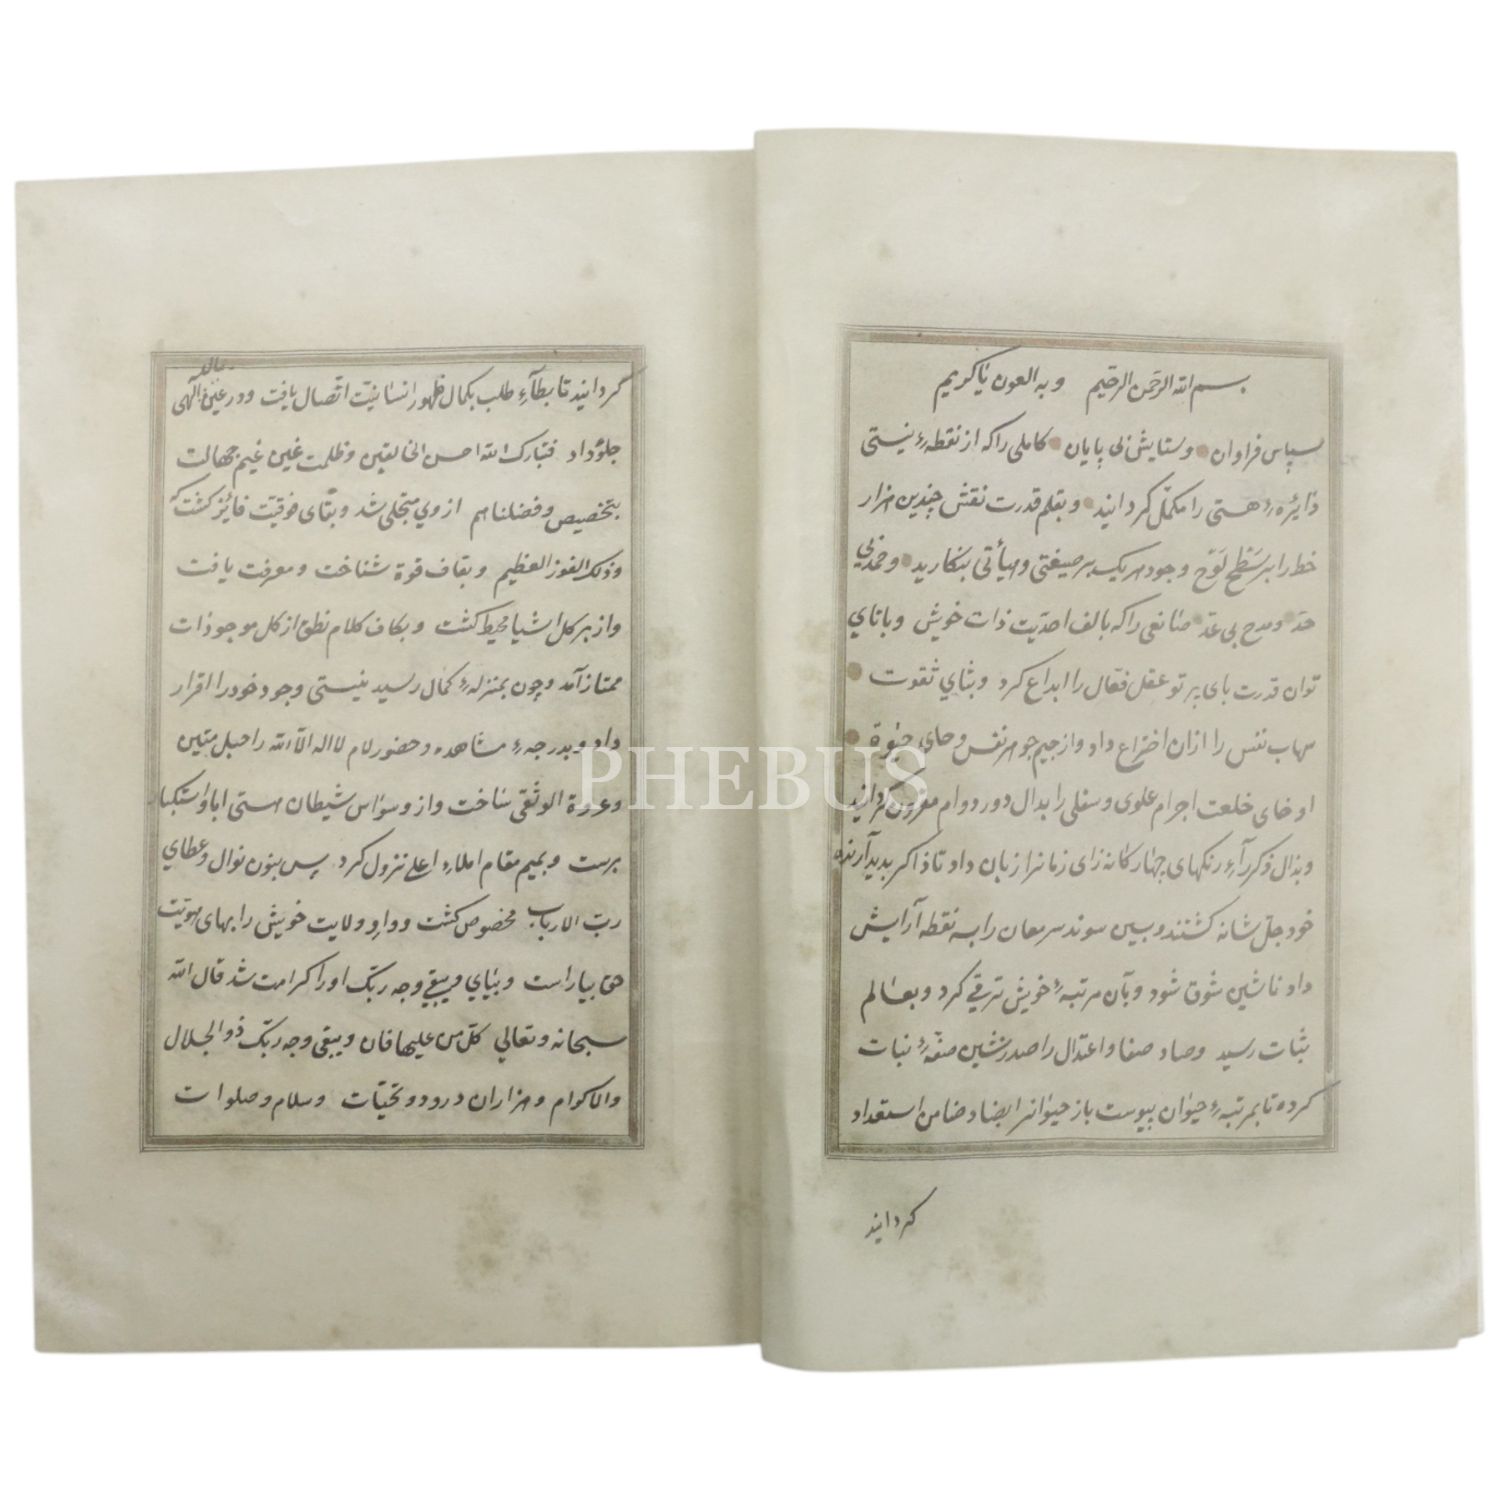 بسم الله الرحمن الرحیم وبه العون یا کریم
سپاس فراوان و ستایش بی پایان کاملی را که از نقطهٔ نیستی
دایرهٔ هستی را مکمّل کردانید و بقلم قدرت نقش چندین هزار
خط را بر سَطْحِ لَوْحِ وجود هریک بر صیغتی و هیأتی بنکارید و حمد بی
حدّ و مدح بی عدّ صانعی را که بالف احدیّت ذات خویش و باتای
توان قدرت بای پرتو عقل فعّال را ابداع کرد و بثای ثقوت
نفس را ازان اختراع داد و از جیم جوهر نفس و حای حیوة
او خای خلعت اجرام علوی و سفلی را بدال دور دوام مقرون کردانید
و بذال ذکر رآء رنکهای چهارکانه زای زمانرا زبان داد تا ذاکر پدید آرنده
خود جلّ شانه کشتند و بسین سوند سر معان را به نقطه آرایش
داد تا شین شوق شود و بآن مرتبهٔ خویش ترقی کرد و بعالم
ثبات رسید و صاد صفا و اعتدال را صدرنشین صفّهٔ نبات
کرده تا بمرتبهٔ حیوان پیوست باز حیوانرا بضاد ضامن استعداد
کردانید
کردانید تا بطآء طلب بکمال ظهور انسانیّت اتّصال یافت و در عین الهی
جلوه داد فتبارك الله احسن الخالقین و ظلمت غین غیم جهالت
بتخصیص و فضلناهم از وی متجلی شد و بفای فوقیّت فائز کشت که
وذلك الفوز العظیم و بقاف قوة شناخت و معرفت یافت
و از بر کل اشیا محیط کشت و بکاف کلام نطق از کل موجودات
ممتاز آمد و چون بمنزلهٔ کمال رسید نیستی وجود خود را اقرار
داد و بدرجهٔ مشاهده و حضور لام لا اله الّا الله را حبل متین
و عروة الوثقی ساخت و از وسواس شیطان هستی ابا و استکبار
برست و بمیم مقام املاء اعلی نزول کرد پس بنون نوال و عطای
ربّ الارباب مخصوص کشت و واو ولایت خویش را بهای هویّت
حق بیاراست و بیای ویبقی وجه ربّك او را کرامت شد قال الله
سبحانه وتعالی کلّ من علیها فان ویبقی وجه ربّك ذو الجلال
والاکرام و هزاران درود و تحیّات و سلام و صلوات
PHEBUS